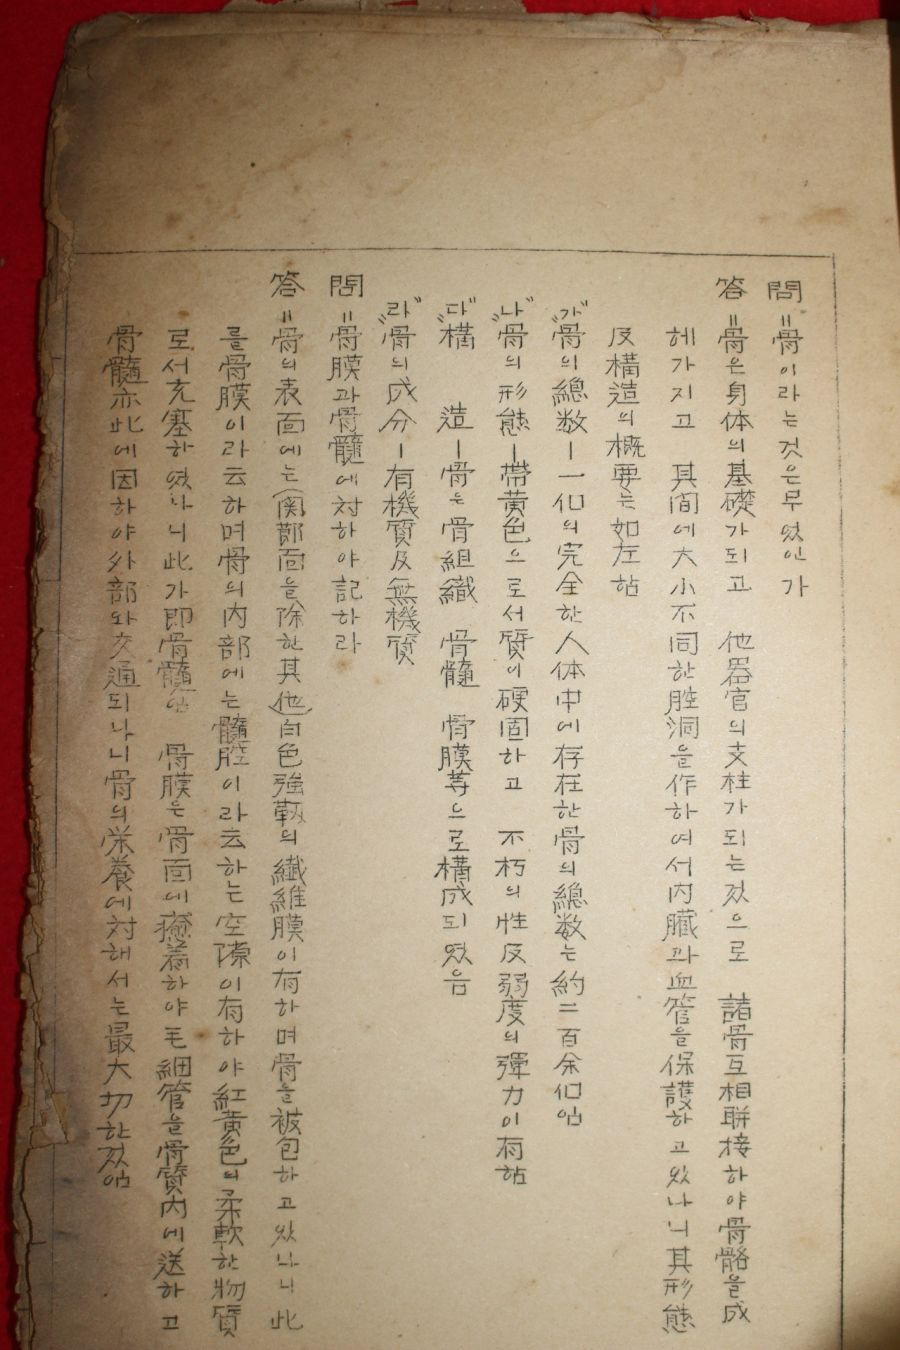 問=骨이라는것은무엇인가
答=骨은身体의基礎가되고 他器官의支柱가되는것으로 諸骨互相聯接하야骨骼을成
헤가지고 其間에大小不同한腔洞을作하여서內臟과血管을保護하고있나니其形態
及構造의槪要는如左함
"가"骨의總数ー一個의完全한人体中에存在한骨의總数는約二百余個임
"나"骨의形態ー帶黃色으로서質이硬固하고 不朽의性及弱度의彈力이有함
"다"構 造ー骨은骨組織 骨髓 骨膜等으로構成되였음
"라"骨의成分ー有機質及無機質
問=骨膜과骨髓에対하야記하라
答=骨의表面에는(関節面을除한其他)白色強靱의纖維膜이有하며骨을被包하고있나니此
를骨膜이라云하며骨의內部에는髓腔이라云하는空隙이有하야紅黃色의柔軟한物質
로서充塞하였나니此가即骨髓임 骨膜은骨面에癒着하야毛細管을骨質內에送하고
骨髓亦此에因하야外部와交通되나니骨의栄養에対해서는最大切한것임